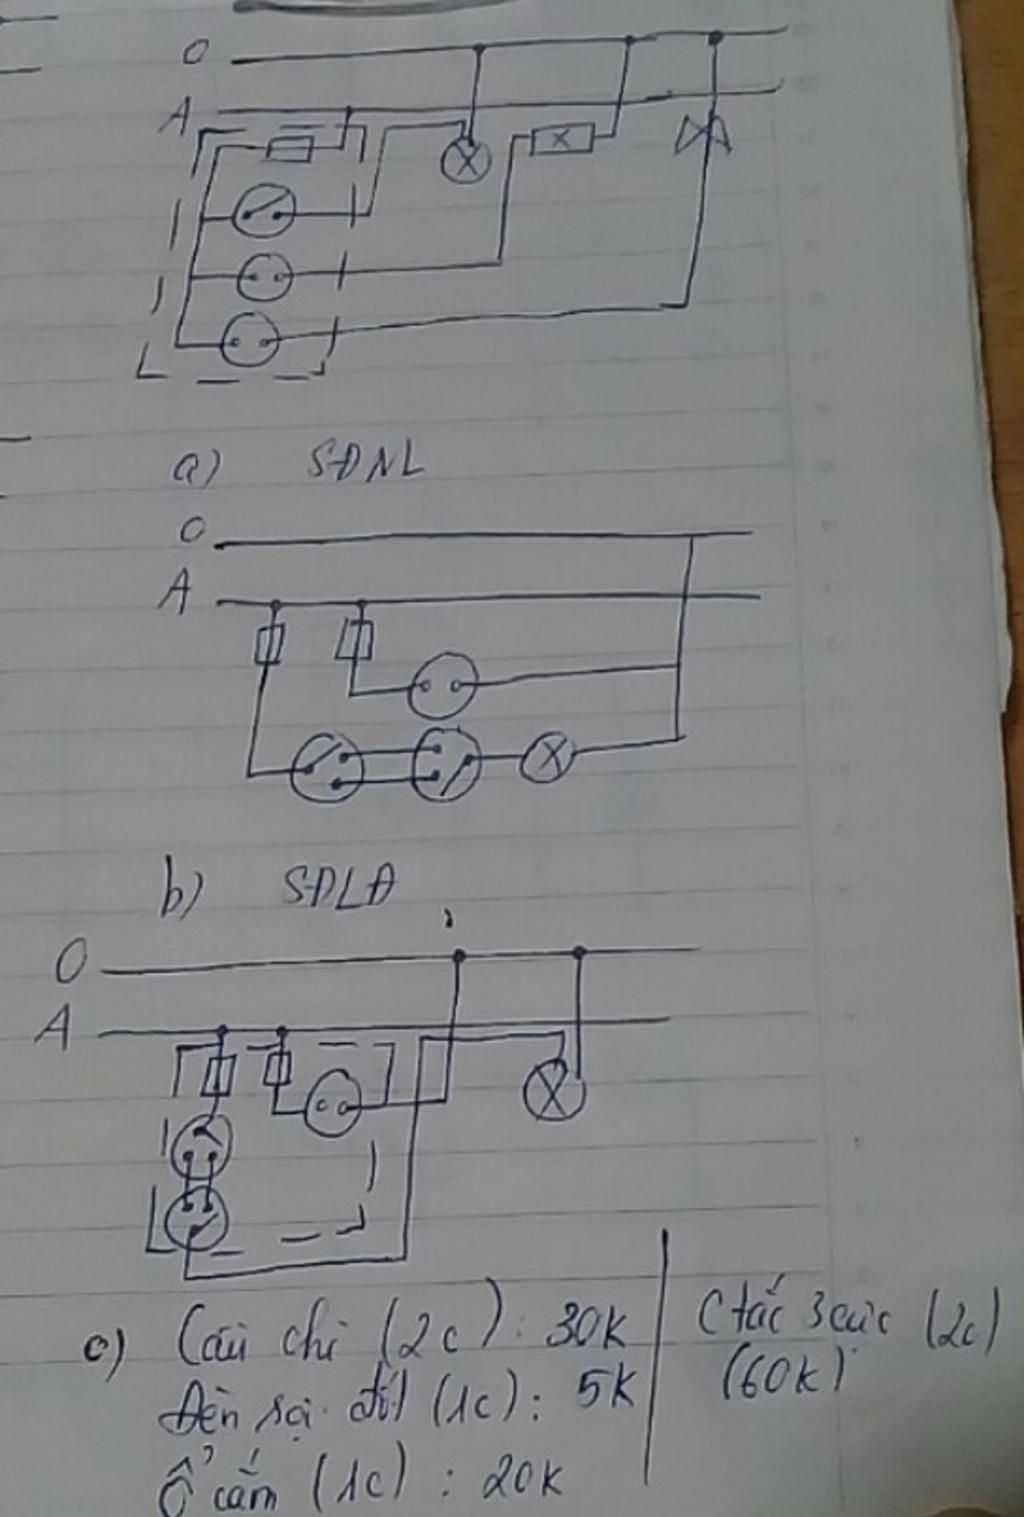 O
A
a) SĐNL
O
A
b) SĐLĐ
O
A
c) Cầu chì (2c): 30K
Đèn sợi đốt (1c): 5K
Ổ cắm (1c): 20K
C tắc 3 cực (2c)
(60K)